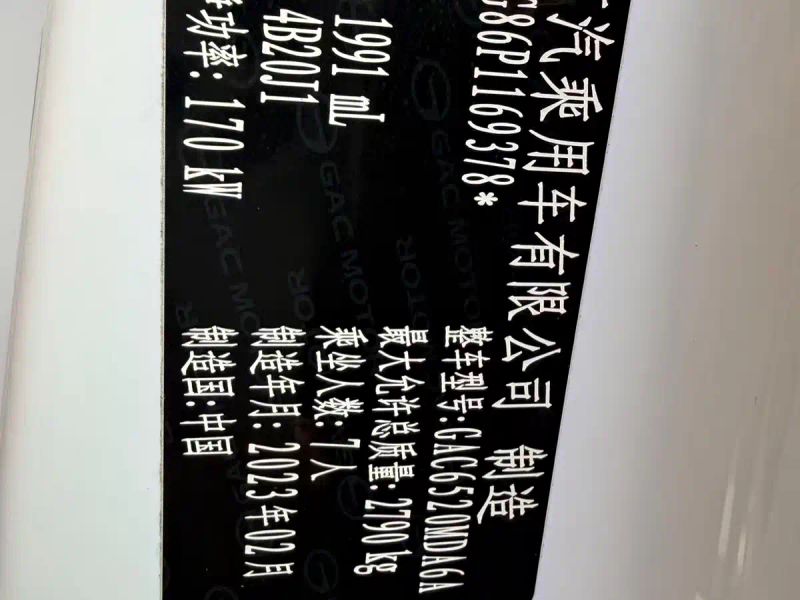 汽乘用车有限公司 制造
G86P1169378*
整车型号:GAC6520MDA6A
1991 mL
最大允许总质量:2790kg
4B20J1
乘坐人数:7人
功率:170kW
制造年月:2023年02月
制造国:中国
GAC MOTOR
GAC MOTOR